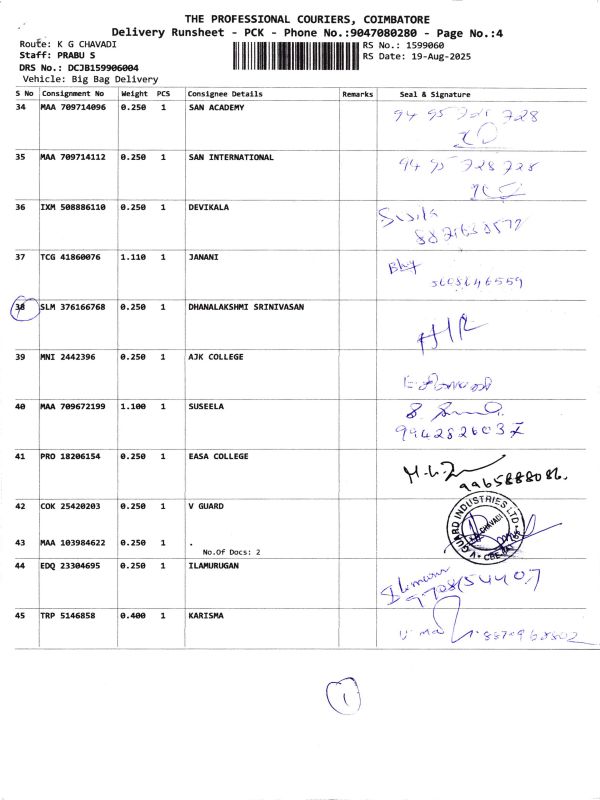 THE PROFESSIONAL COURIERS, COIMBATORE
Delivery Runsheet - PCK - Phone No.:9047080280 - Page No.:4
Route: K G CHAVADI
RS No.: 1599060
Staff: PRABU S
RS Date: 19-Aug-2025
DRS No.: DCJB159906004
Vehicle: Big Bag Delivery
S No Consignment No Weight PCS Consignee Details Remarks Seal & Signature
34 MAA 709714096 0.250 1 SAN ACADEMY
35 MAA 709714112 0.250 1 SAN INTERNATIONAL
94 95 728 728
36 IXM 508886110 0.250 1 DEVIKALA
37 TCG 41860076 1.110 1 JANANI
38 SLM 376166768 0.250 1 DHANALAKSHMI SRINIVASAN
39 MNI 2442396 0.250 1 AJK COLLEGE
40 MAA 709672199 1.100 1 SUSEELA
9442826037
41 PRO 18206154 0.250 1 EASA COLLEGE
9965888086.
42 COK 25420203 0.250 1 V GUARD
V GUARD INDUSTRIES LTD
CHAVADI
43 MAA 103984622 0.250 1 .
No.Of Docs: 2
44 EDQ 23304695 0.250 1 ILAMURUGAN
9708154407
45 TRP 5146858 0.400 1 KARISMA
1